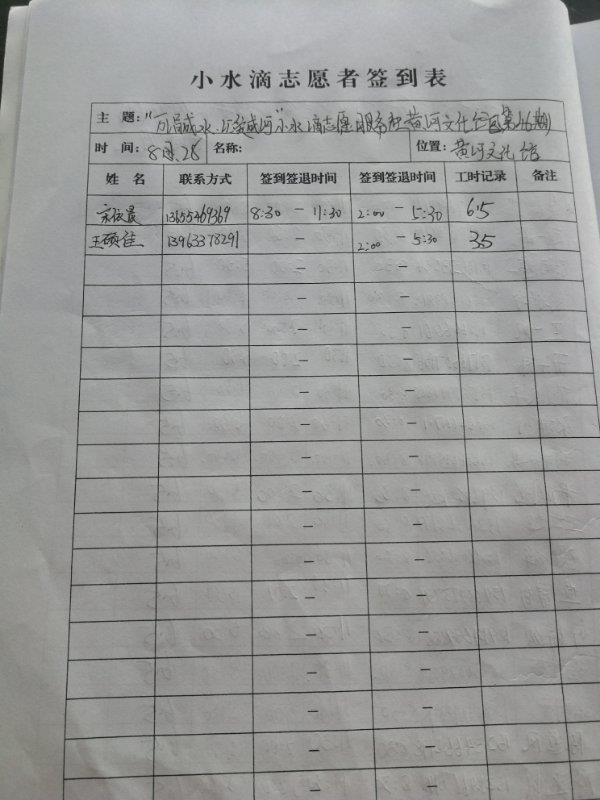 小水滴志愿者签到表
主 题：小水滴志愿服务 黄河文化 第16期
时 间：8月.28 名称： 位置：黄河文化馆
姓 名 联系方式 签到签退时间 签到签退时间 工时记录 备注
宋依晨 8:30 — 11:30 2:00 — 5:30 6.5
王硕佳 13963378291 — 2:00 — 5:30 3.5